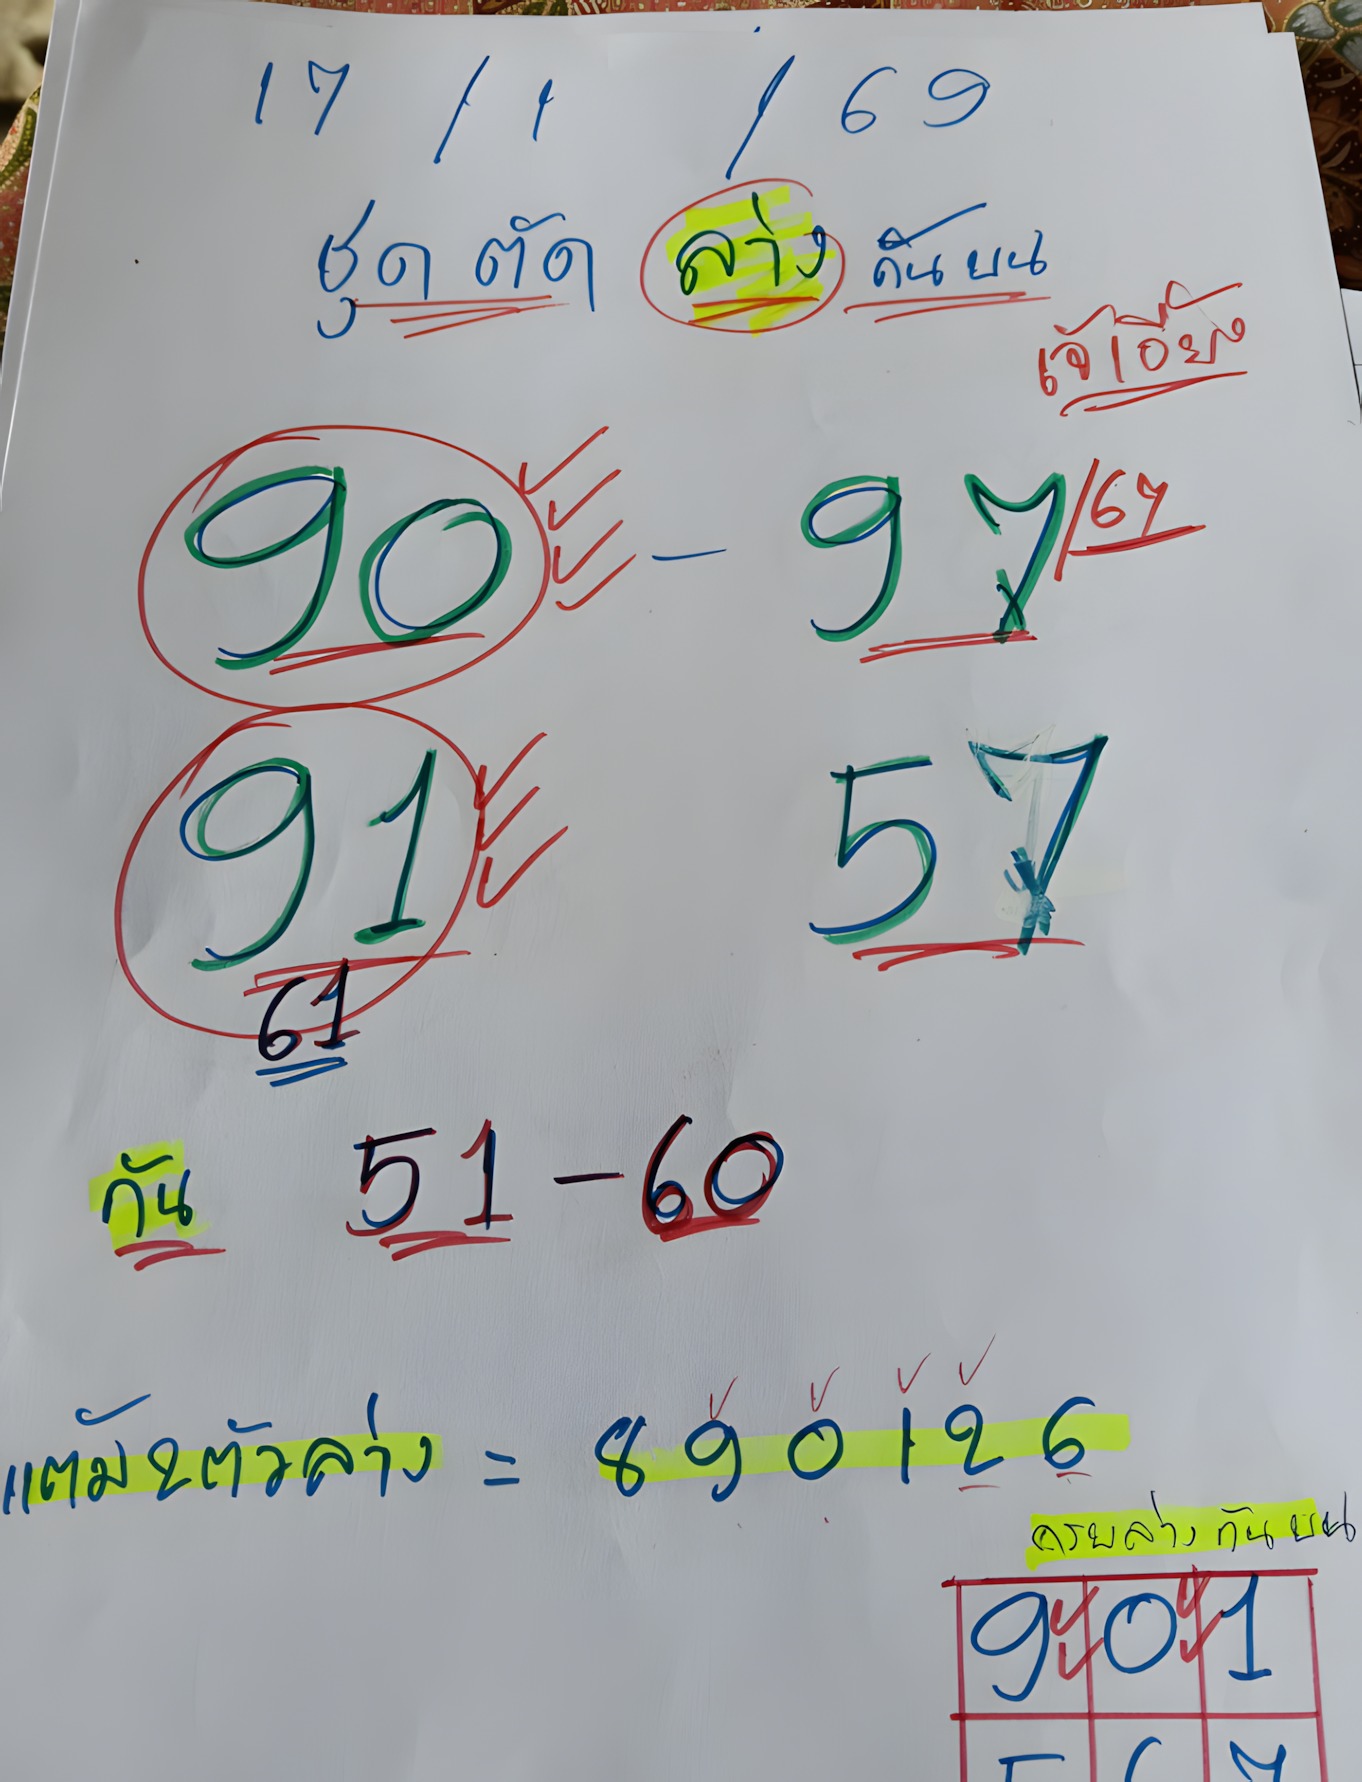 17 / 1 / 69
ชุด ตัด ล่าง กันบน
เจ๊เอียง
90 - 97 / 67
91 57
61
กัน 51 - 60
แต้ม 2 ตัวล่าง = 8 9 0 1 2 6
กรบล่าง กันบน
9 0 1
5 6 7